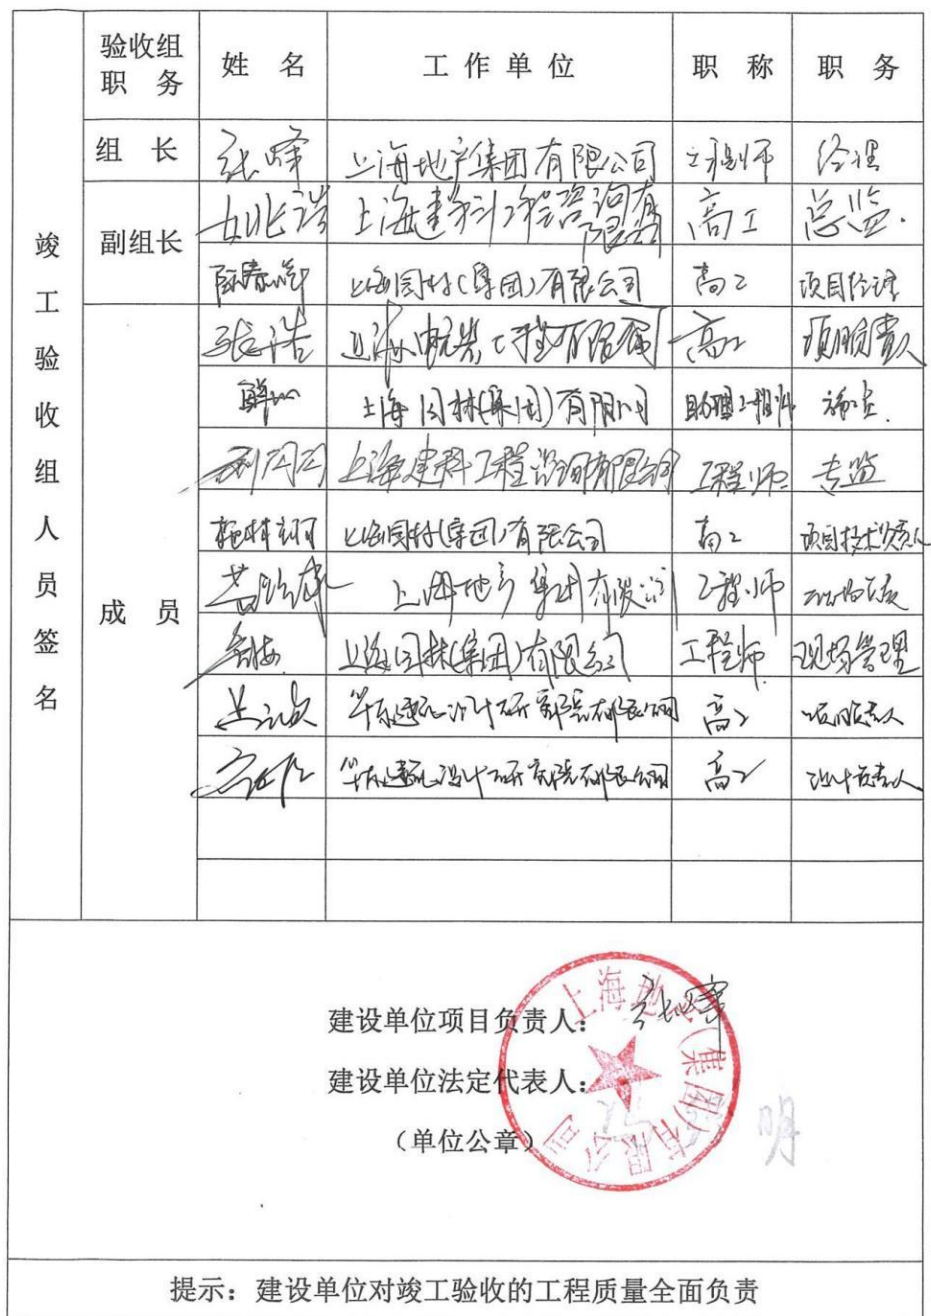 竣工验收组人员签名
验收组职务 姓名 工作单位 职称 职务
组长 张峰 上海地产集团有限公司 工程师 经理
副组长 姚浩 上海建科工程咨询有限公司 高工 总监
上海园林(集团)有限公司 高工 项目经理
成员 张浩 上海 工程有限公司 高工 项目负责人
上海园林(集团)有限公司 助理工程师
上海建科工程咨询有限公司 工程师 专监
上海园林(集团)有限公司 高工 项目技术负责人
上海地产集团有限公司 工程师
上海园林(集团)有限公司 工程师 现场管理
华东建筑设计研究院有限公司 高工 项目负责人
华东建筑设计研究院有限公司 高工 设计负责人
建设单位项目负责人: 张峰
建设单位法定代表人:
(单位公章)
上海地产(集团)有限公司
明
提示:建设单位对竣工验收的工程质量全面负责